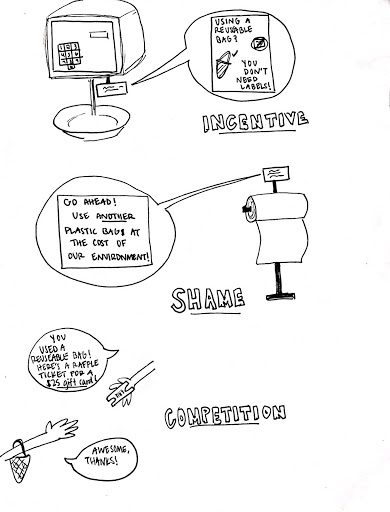 USING A
REUSABLE
BAG?
YOU
DON'T
NEED
LABELS!
INCENTIVE
GO AHEAD!
USE ANOTHER
PLASTIC BAGS AT
THE COST OF
OUR ENVIRONMENT!
SHAME
YOU
USED A
REUSEABLE BAG!
HERE'S A RAFFLE
TICKET FOR A
$25 gift card!
COMPETITION
AWESOME,
THANKS!